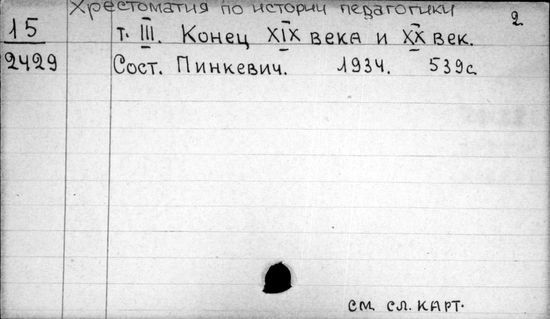 Хрестоматия по истории педагогики
2
15
2429
т. III. Конец XIX века и XX век.
Сост. Пинкевич. 1934. 539с.
см. сл. карт.